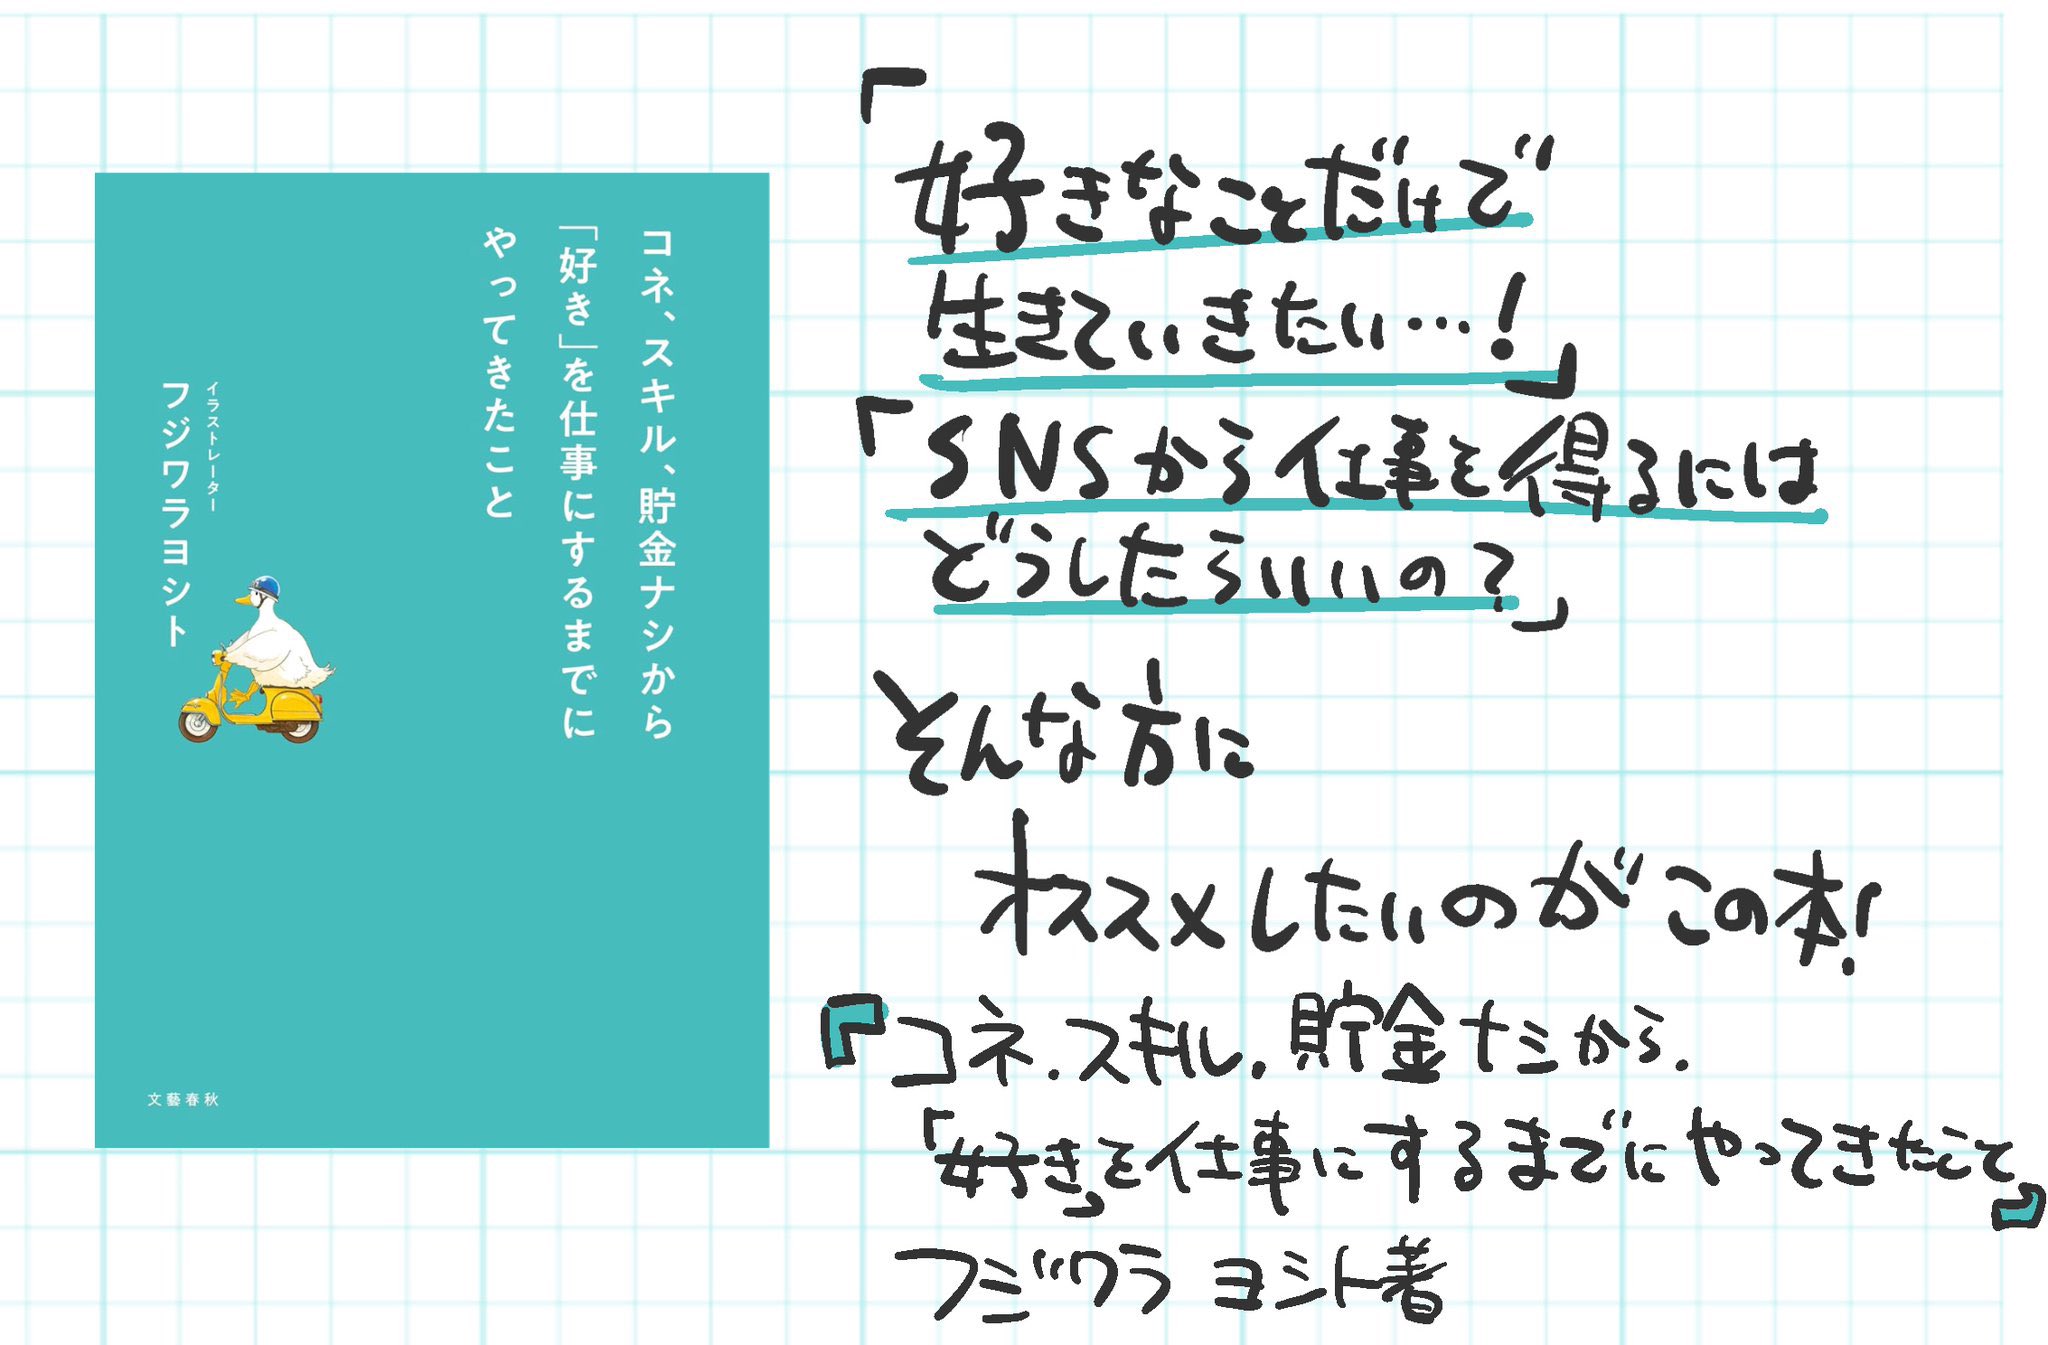 コネ、スキル、貯金ナシから
「好き」を仕事にするまでに
やってきたこと
イラストレーター
フジワラヨシト
文藝春秋
「好きなことだけで
生きていきたい…!」
「SNSから仕事を得るには
どうしたらいいの?」
そんな方に
オススメしたいのがこの本!
『コネ.スキル.貯金ナシから.
「好き」を仕事にするまでにやってきたこと』
フジワラヨシト著